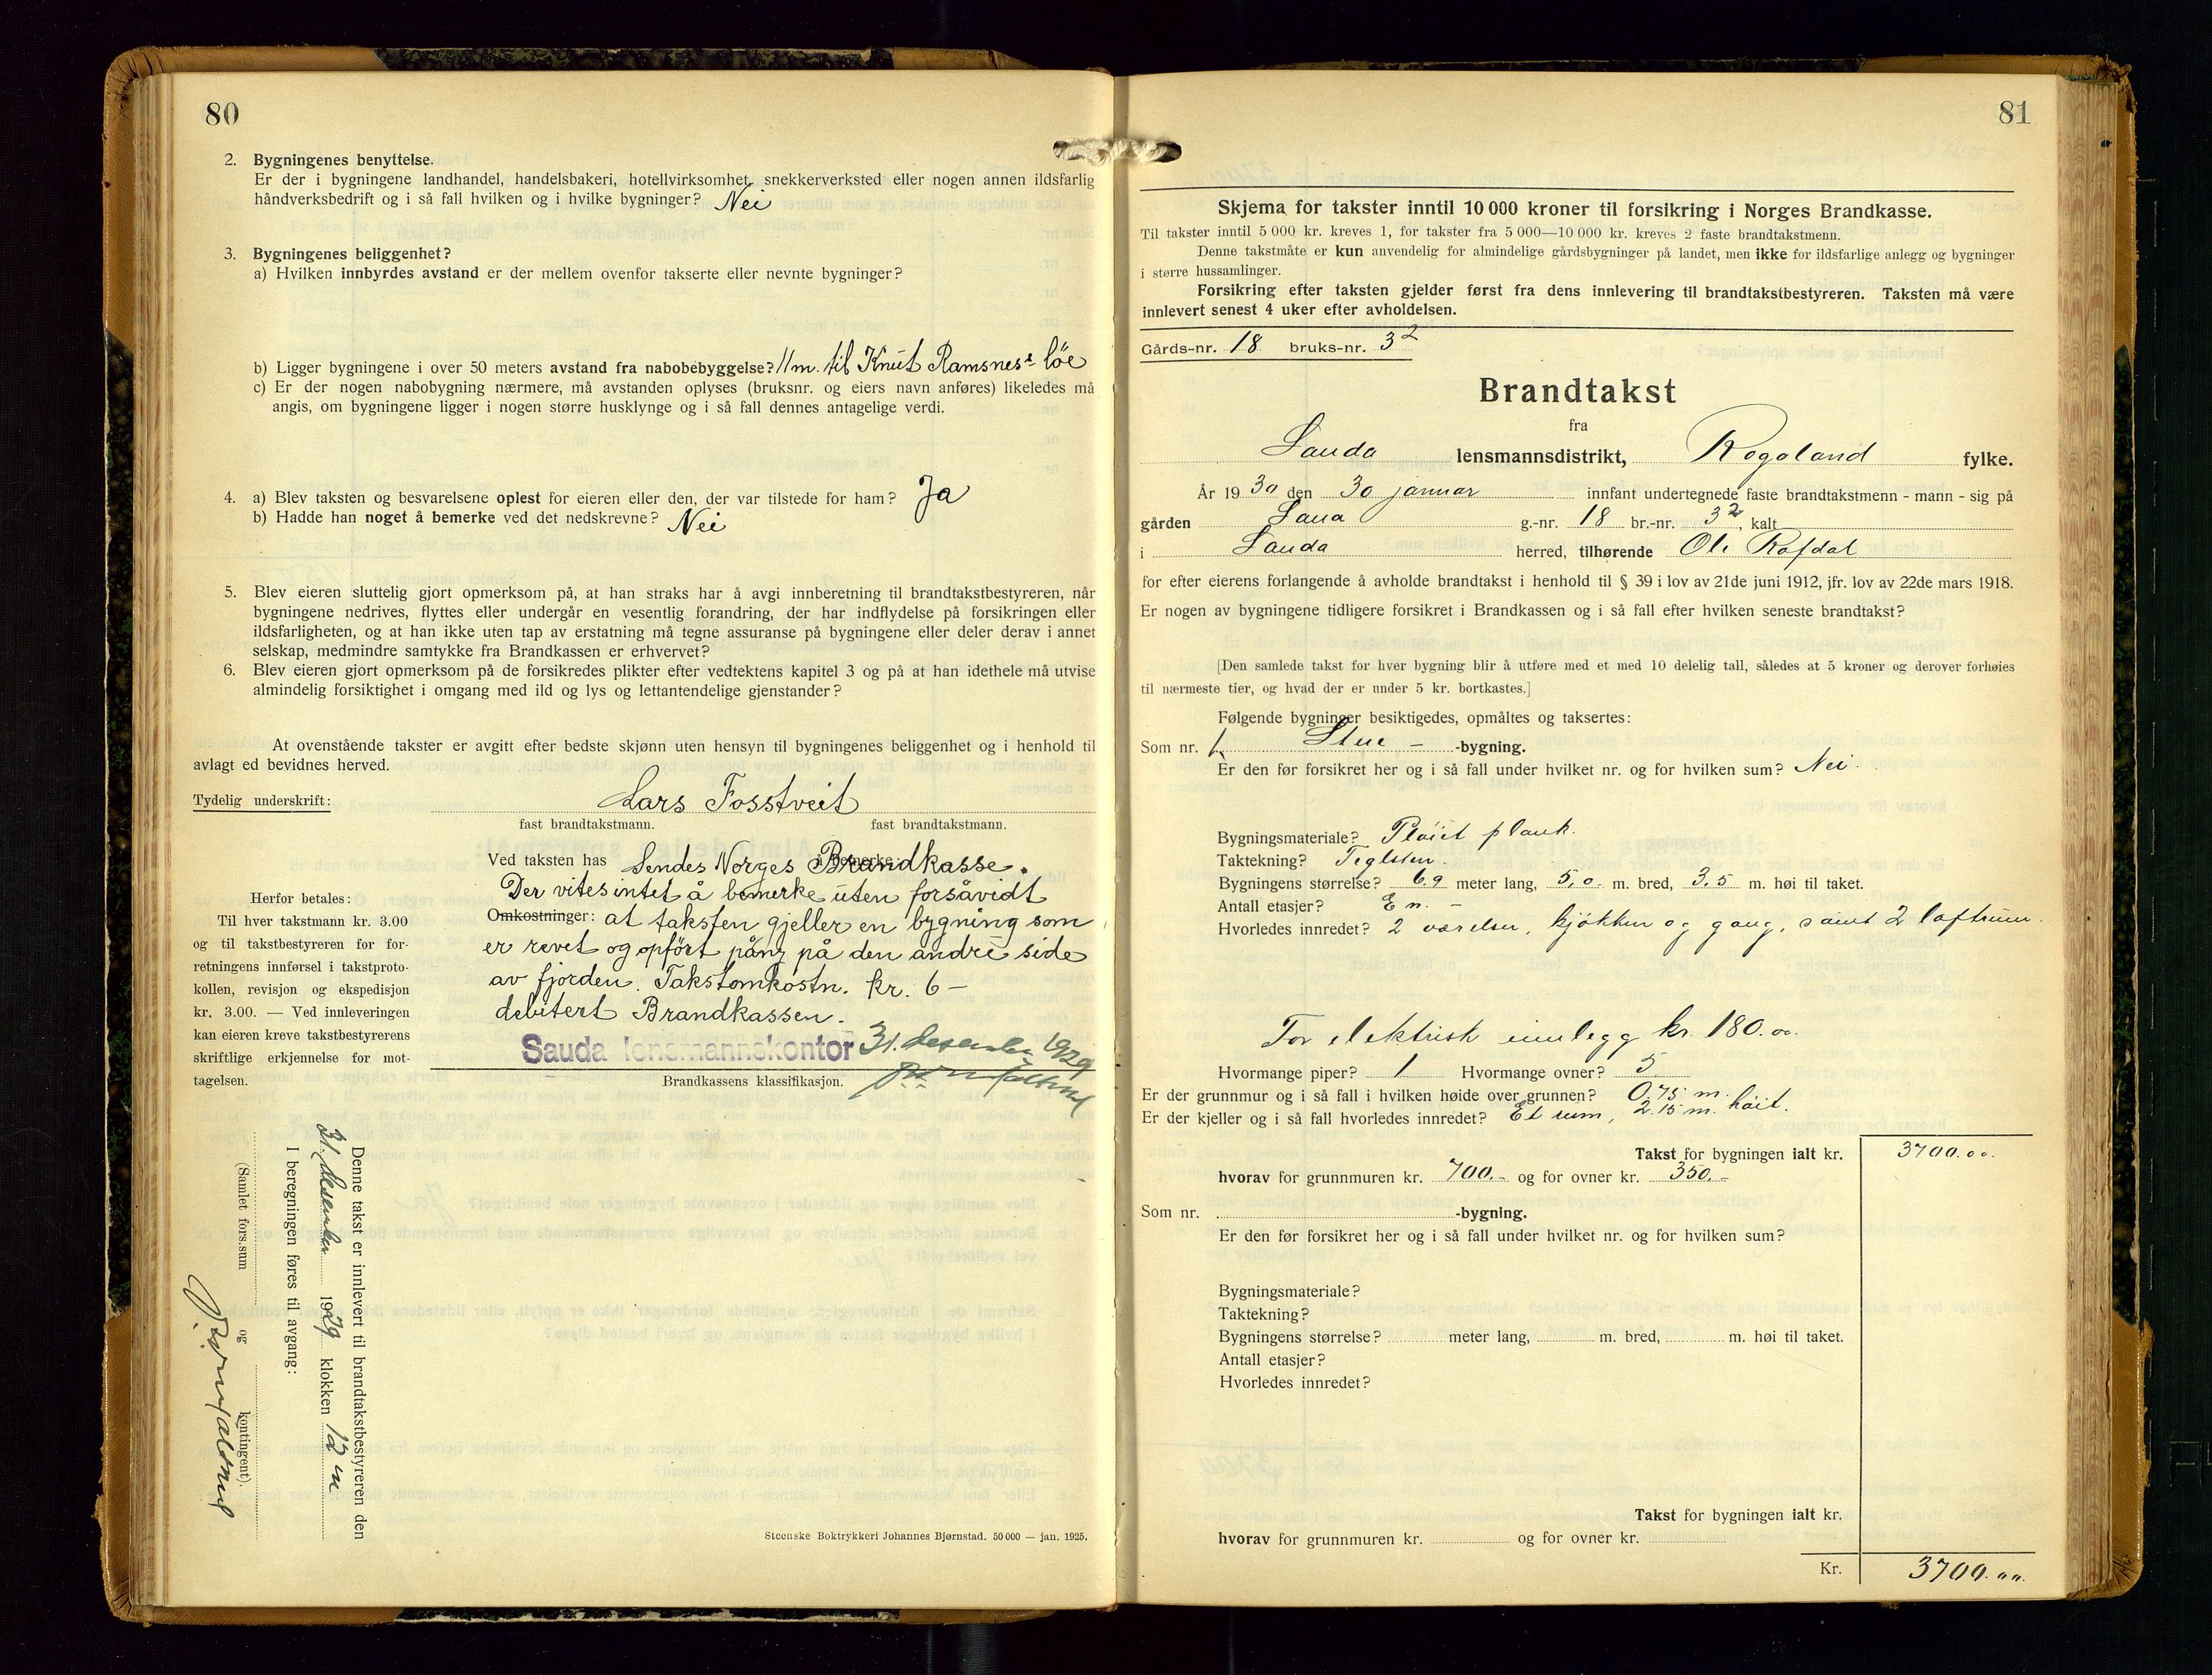 80
2. Bygningenes benyttelse.
Er der i bygningene landhandel, handelsbakeri, hotellvirksomhet, snekkerverksted eller nogen annen ildsfarlig
håndverksbedrift og i så fall hvilken og i hvilke bygninger? Nei
3. Bygningenes beliggenhet?
a) Hvilken innbyrdes avstand er der mellem ovenfor takserte eller nevnte bygninger?
b) Ligger bygningene i over 50 meters avstand fra nabobebyggelse? 11 m. til Knut Ramsnes' löe
c) Er der nogen nabobygning nærmere, må avstanden oplyses (bruksnr. og eiers navn anføres) likeledes må
angis, om bygningene ligger i nogen større husklynge og i så fall dennes antagelige verdi.
4. a) Blev taksten og besvarelsene oplest for eieren eller den, der var tilstede for ham? Ja
b) Hadde han noget å bemerke ved det nedskrevne? Nei
5. Blev eieren sluttelig gjort opmerksom på, at han straks har å avgi innberetning til brandtakstbestyreren, når
bygningene nedrives, flyttes eller undergår en vesentlig forandring, der har indflydelse på forsikringen eller
ildsfarligheten, og at han ikke uten tap av erstatning må tegne assuranse på bygningene eller deler derav i annet
selskap, medmindre samtykke fra Brandkassen er erhvervet?
6. Blev eieren gjort opmerksom på de forsikredes plikter efter vedtektens kapitel 3 og på at han idethele må utvise
almindelig forsiktighet i omgang med ild og lys og lettantendelige gjenstander?
At ovenstående takster er avgitt efter bedste skjønn uten hensyn til bygningenes beliggenhet og i henhold til
avlagt ed bevidnes herved.
Tydelig underskrift: Lars Fosstveit
fast brandtakstmann. fast brandtakstmann.
Ved taksten has å bemerke: Sendes Norges Brandkasse.
Der vites intet å bemerke uten forsåvidt
Omkostninger: at taksten gjeller en bygning som
er revet og opført påny på den andre side
av fjorden. Takstomkostn. kr. 6 –
debitert Brandkassen.
Sauda lensmannskontor 31. desember 1929
Brandkassens klassifikasjon.
Herfor betales:
Til hver takstmann kr. 3.00
og til takstbestyreren for for-
retningens innførsel i takstproto-
kollen, revisjon og ekspedisjon
kr. 3.00. — Ved innleveringen
kan eieren kreve takstbestyrerens
skriftlige erkjennelse for mot-
tagelsen.
Denne takst er innlevert til brandtakstbestyreren den
31. desember 1929 klokken 12 m
I beregningen føres til avgang:
(Samlet fors.sum og kontingent).
Steenske Boktrykkeri Johannes Bjørnstad. 50 000 — jan. 1925.
81
Skjema for takster inntil 10 000 kroner til forsikring i Norges Brandkasse.
Til takster inntil 5 000 kr. kreves 1, for takster fra 5 000—10 000 kr. kreves 2 faste brandtakstmenn.
Denne takstmåte er kun anvendelig for almindelige gårdsbygninger på landet, men ikke for ildsfarlige anlegg og bygninger
i større hussamlinger.
Forsikring efter taksten gjelder først fra dens innlevering til brandtakstbestyreren. Taksten må være
innlevert senest 4 uker efter avholdelsen.
Gårds-nr. 18 bruks-nr. 32
Brandtakst
fra
Sauda lensmannsdistrikt, Rogaland fylke.
År 1930 den 30 januar innfant undertegnede faste brandtakstmenn - mann - sig på
gården Saua g.-nr. 18 br.-nr. 32, kalt
i Sauda herred, tilhørende Ole Rafdal
for efter eierens forlangende å avholde brandtakst i henhold til § 39 i lov av 21de juni 1912, jfr. lov av 22de mars 1918.
Er nogen av bygningene tidligere forsikret i Brandkassen og i så fall efter hvilken seneste brandtakst?
[Den samlede takst for hver bygning blir å utføre med et med 10 delelig tall, således at 5 kroner og derover forhøies
til nærmeste tier, og hvad der er under 5 kr. bortkastes.]
Følgende bygninger besiktigedes, opmåltes og taksertes:
Som nr. 1. Stue – -bygning.
Er den før forsikret her og i så fall under hvilket nr. og for hvilken sum? Nei.
Bygningsmateriale? Pløiet plank.
Taktekning? Teglsten.
Bygningens størrelse? 6.9 meter lang, 5,0. m. bred, 3,5 m. høi til taket.
Antall etasjer? En. –
Hvorledes innredet? 2 værelser, kjøkken og gang, samt 2 loftrum.
For elektrisk innlegg kr. 180.00.
Hvormange piper? 1 Hvormange ovner? 5.
Er der grunnmur og i så fall i hvilken høide over grunnen? 0,75 m.
Er der kjeller og i så fall hvorledes innredet? Et rum, 2.15 m. høit.
Takst for bygningen ialt kr. 3700.00.
hvorav for grunnmuren kr. 700.- og for ovner kr. 350.-
Som nr. -bygning.
Er den før forsikret her og i så fall under hvilket nr. og for hvilken sum?
Bygningsmateriale?
Taktekning?
Bygningens størrelse? meter lang, m. bred, m. høi til taket.
Antall etasjer?
Hvorledes innredet?
Takst for bygningen ialt kr.
hvorav for grunnmuren kr. og for ovner kr.
Kr. 3700.00.